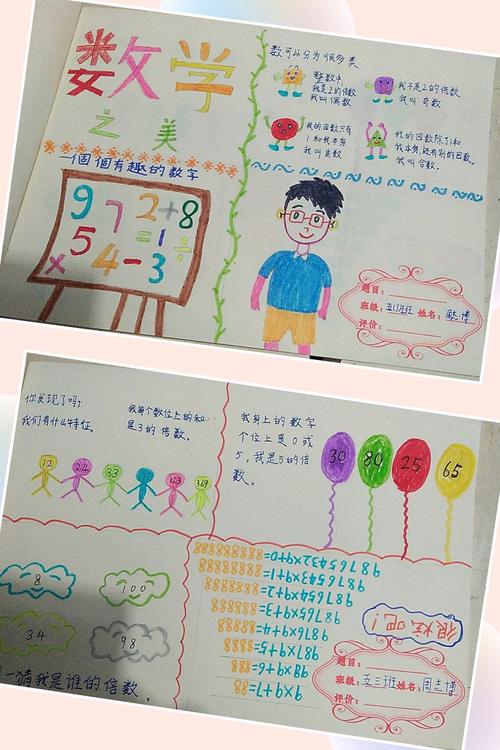 数学
之美
一個個有趣的数字
9 7 2+8
5 =1 ÷
× 4-3
数可以分为很多类
整数中,
我是2的倍数
我叫偶数
我不是2的倍数
我叫奇数
我的因数只有
1和我本身
我叫质数
我的因数除了1和
我本身,还有别的因数。
我叫合数。
题目:
班级:五(3)班 姓名:周志博
评价:
你发现了吗?
我们有什么特征。
我每个数位上的和
是3的倍数。
12 24 33 111 123 369
我身上的数字
个位上是0或
5,我是5的倍
数。
30 80 25 65
8 100
34 98
一猜我是谁的倍数。
9×9+7=88
98×9+6=888
987×9+5=8888
9876×9+4=88888
98765×9+3=888888
987654×9+2=8888888
9876543×9+1=88888888
98765432×9+0=888888888
很炫吧!
题目:
班级:五三班 姓名:周志博
评价: